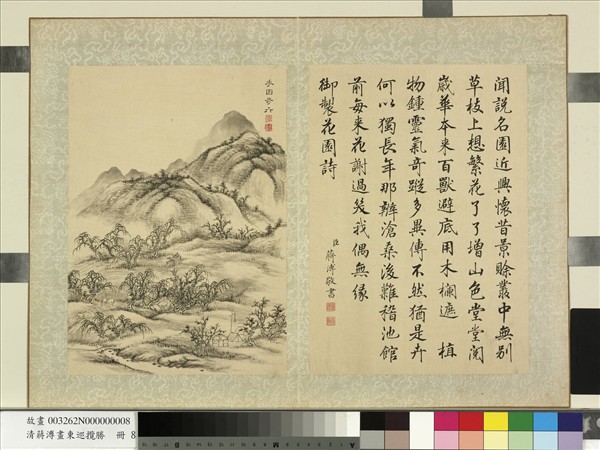 聞說名園近興懷昔景賒叢中無別
草枝上想繁花了了增山色堂堂閱
歲華本来百獸避底用木欄遮 植
物鍾靈氣奇蹤多異傳不然猶是卉
何以獨長年那辨滄桑後難稽池館
前每来花謝過笑我偶無緣
御製花園詩
臣蔣溥敬書
故畫 003262N000000008
清蔣溥畫東巡攬勝 冊 8